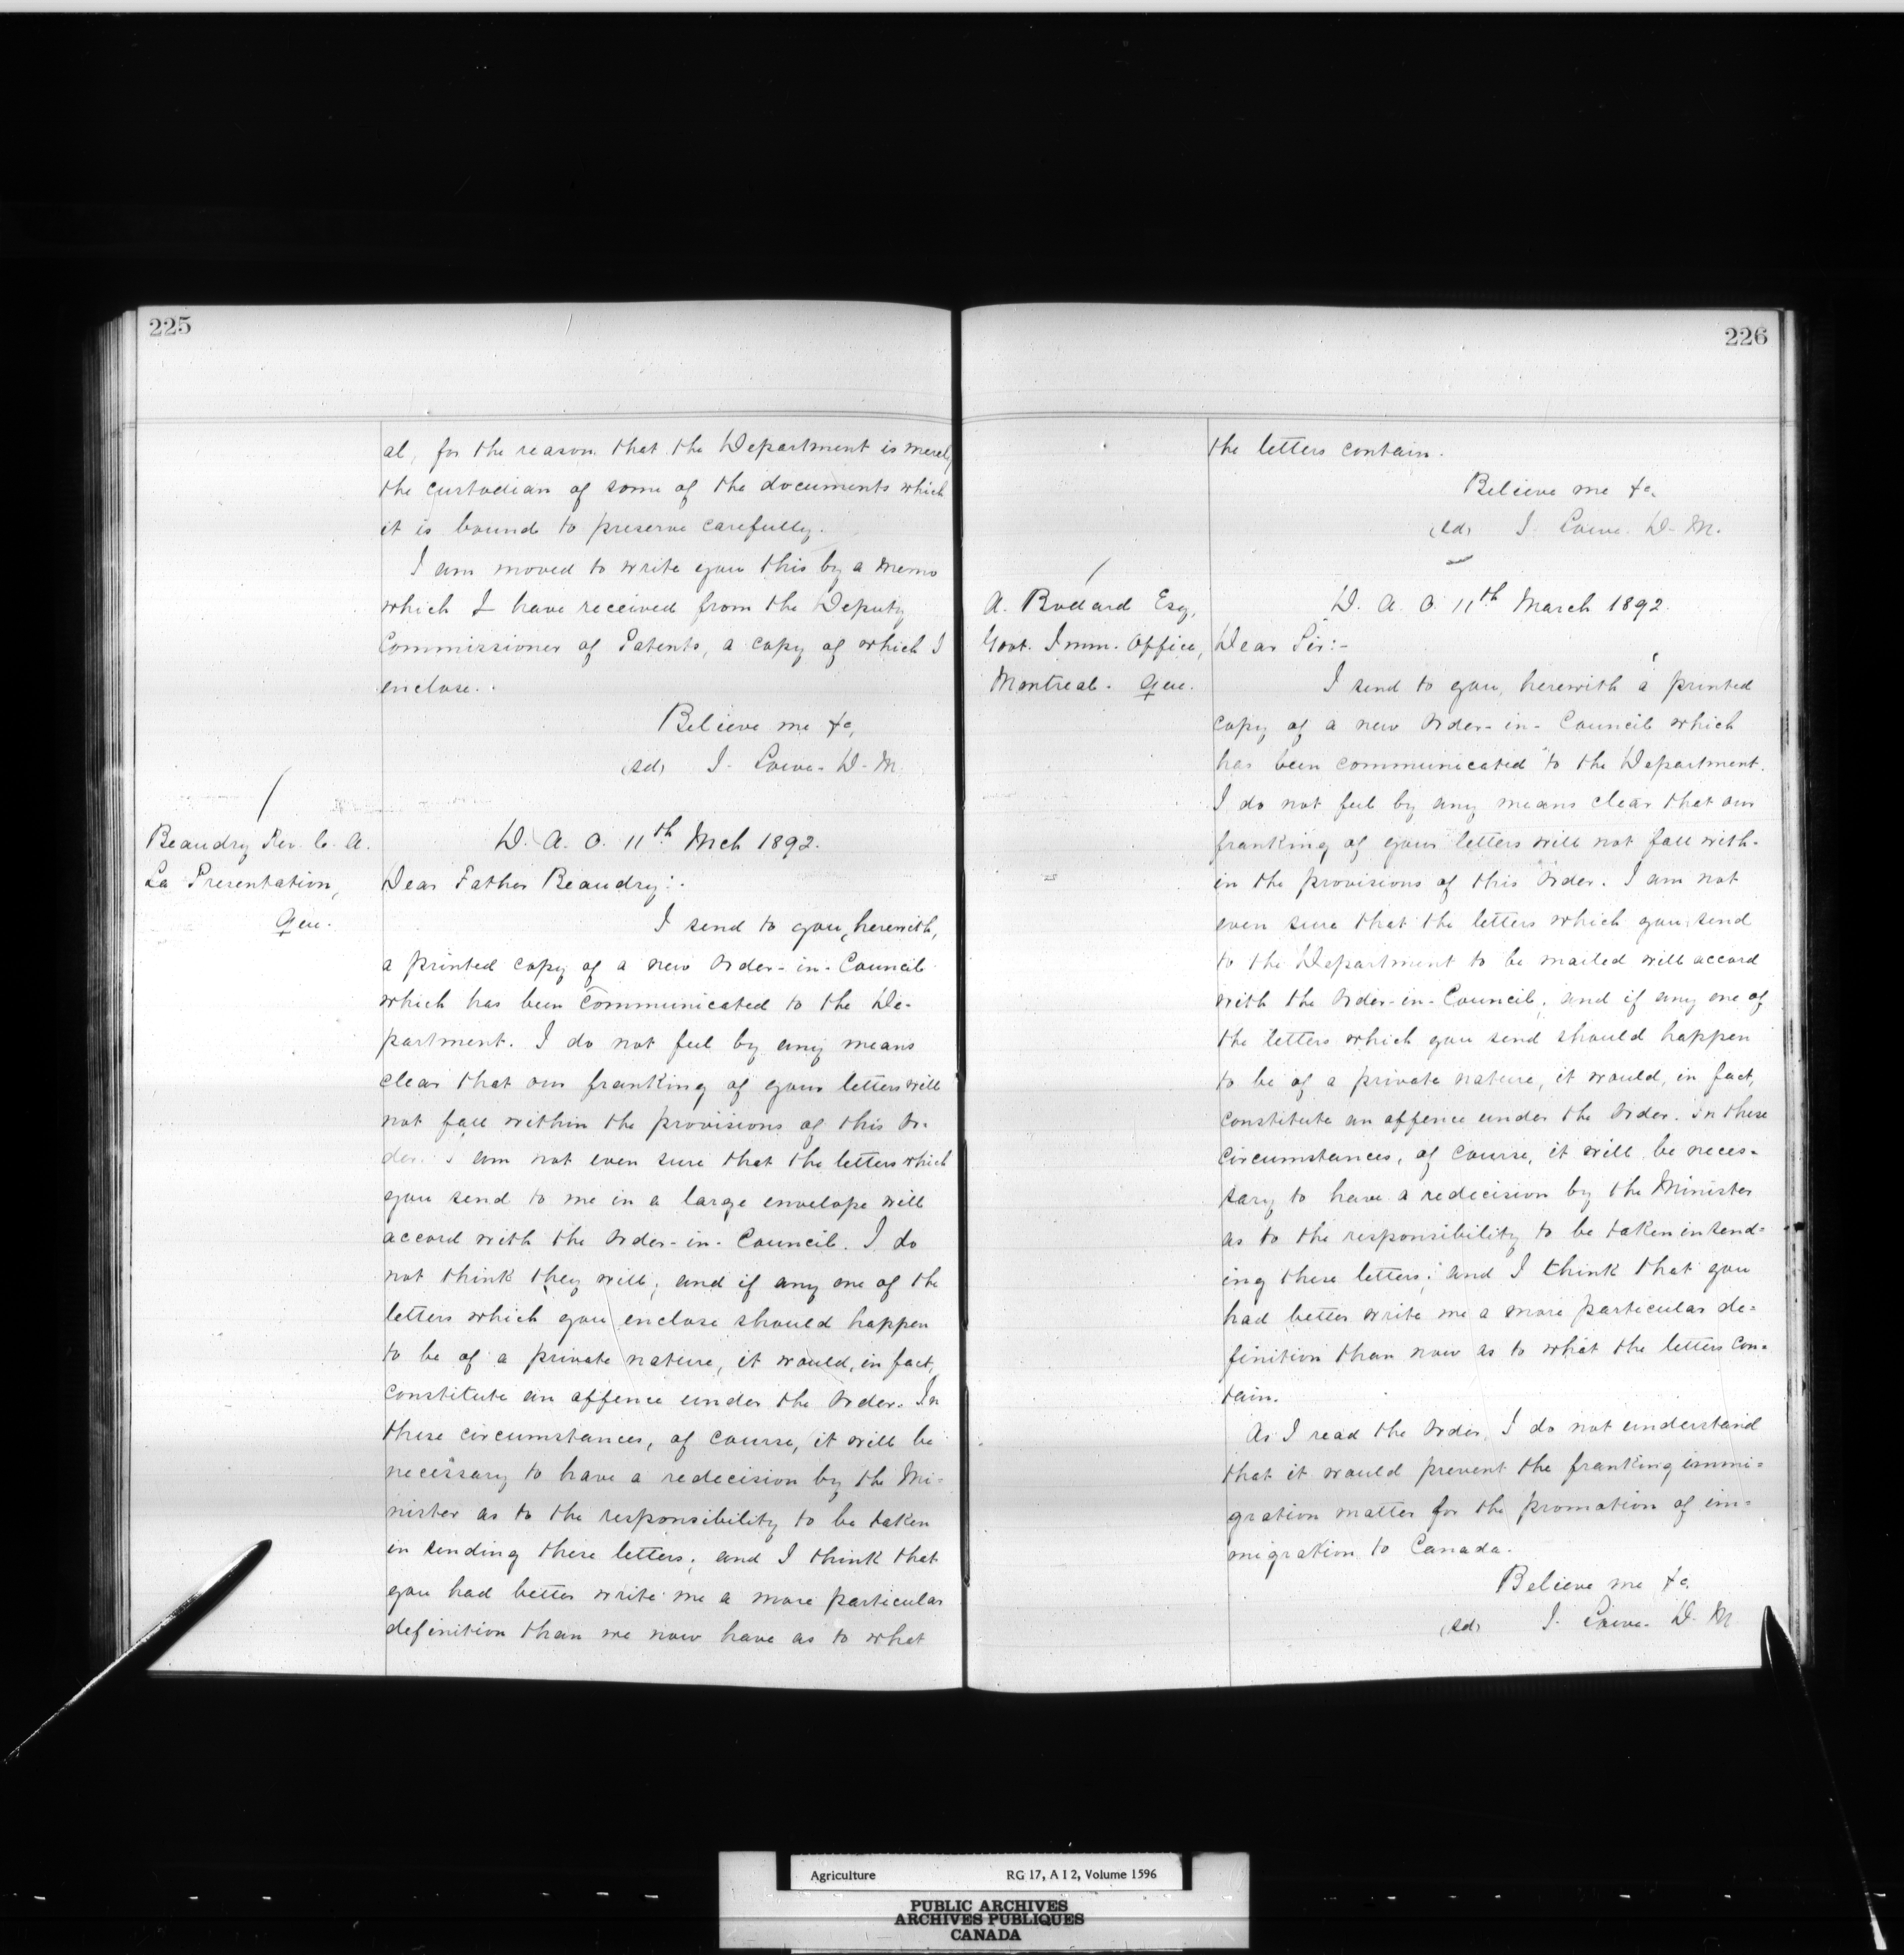 225
al, for the reason that the Department is merely
the custodian of some of the documents which
it is bound to preserve carefully.
I am moved to write you this by a memo
which I have received from the Deputy
Commissioner of Patents, a copy of which I
enclose.
Believe me &c,
(sd) J. Lowe. D. M.
Beaudry Rev. C. A.
La Presentation,
Que.
D. A. O. 11th Mch 1892.
Dear Father Beaudry:-
I send to you, herewith,
a printed copy of a new Order-in-Council
which has been communicated to the De-
partment. I do not feel by any means
clear that our franking of your letters will
not fall within the provisions of this Or-
der. I am not even sure that the letters which
you send to me in a large envelope will
accord with the Order-in-Council. I do
not think they will; and if any one of the
letters which you enclose should happen
to be of a private nature, it would, in fact,
constitute an offence under the Order. In
these circumstances, of course, it will be
necessary to have a redecision by the Mi-
nister as to the responsibility to be taken
in sending these letters; and I think that
you had better write me a more particular
definition than we now have as to what
226
the letters contain.
Believe me &c.
(sd) J. Lowe. D. M.
A. Bodard Esq,
Govt. Imm. Office,
Montreal. Que.
D. A. O. 11th March 1892.
Dear Sir:-
I send to you, herewith a printed
copy of a new Order-in-Council which
has been communicated to the Department.
I do not feel by any means clear that our
franking of your letters will not fall with-
in the provisions of this Order. I am not
even sure that the letters which you send
to the Department to be mailed will accord
with the Order-in-Council; and if any one of
the letters which you send should happen
to be of a private nature, it would, in fact,
constitute an offence under the Order. In these
circumstances, of course, it will be neces-
sary to have a redecision by the Minister
as to the responsibility to be taken in send-
ing these letters; and I think that you
had better write me a more particular de-
finition than now as to what the letters con-
tain.
As I read the Order, I do not understand
that it would prevent the franking immi-
gration matter for the promotion of im-
migration to Canada.
Believe me &c.
(sd) J. Lowe. D. M.
Agriculture RG 17, A I 2, Volume 1596
PUBLIC ARCHIVES
ARCHIVES PUBLIQUES
CANADA